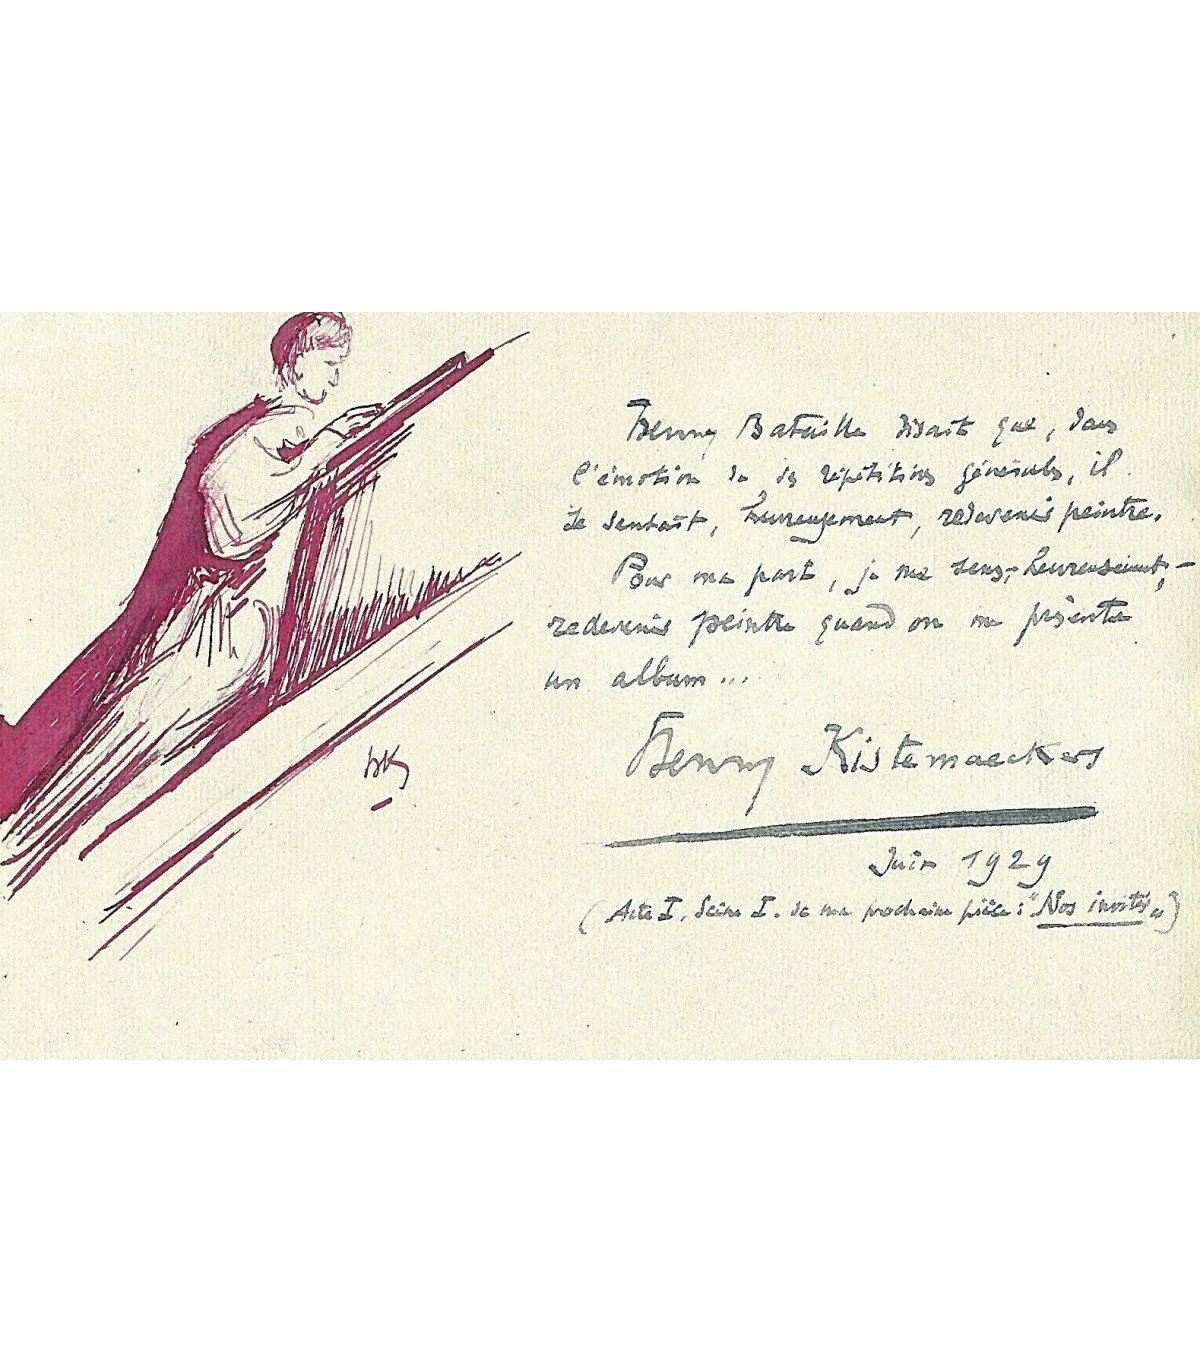 Henry Bataille disait que, dans
l'émotion de ses répétitions générales, il
se sentait, heureusement, redevenir peintre.
Pour ma part, je me sens, - heureusement, -
redevenir peintre quand on me présente
un album...
Henry Kistemaeckers
HK
Juin 1929
(Acte I. Scène I. de ma prochaine pièce : "Nos invités")